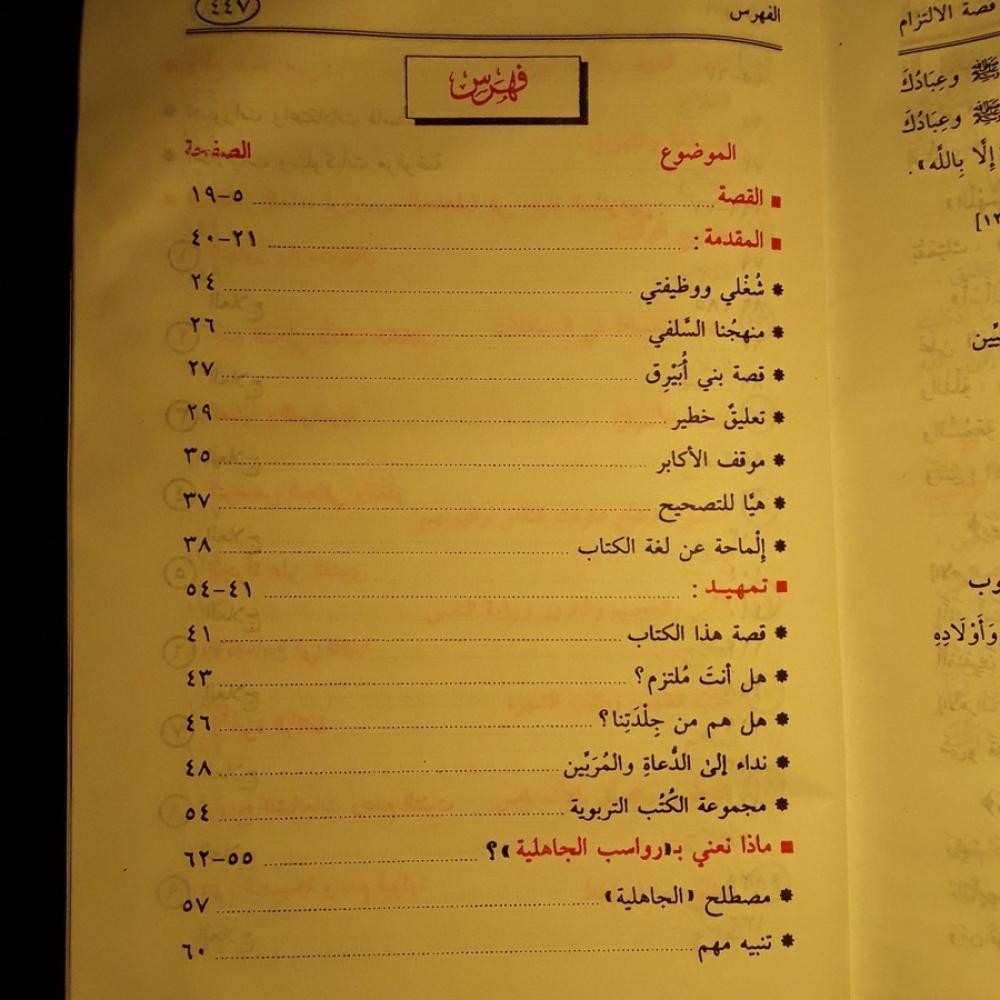 الفهرس ٤٤٧
فهرس
الموضوع الصفحة
■ القصة ........ ٥-١٩
■ المقدمة : ........ ٢١-٤٠
* شُغْلي ووظيفتي ........ ٢٤
* منهجُنا السَّلفي ........ ٢٦
* قصة بني أُبَيْرِق ........ ٢٧
* تعليقٌ خطير ........ ٢٩
* موقف الأكابر ........ ٣٥
* هيَّا للتصحيح ........ ٣٧
* إِلْماحة عن لغة الكتاب ........ ٣٨
■ تمهيـد : ........ ٤١-٥٤
* قصة هذا الكتاب ........ ٤١
* هل أنتَ مُلتزم؟ ........ ٤٣
* هل هم من جِلْدَتِنا؟ ........ ٤٦
* نداء إلىٰ الدُّعاةِ والمُرَبِّين ........ ٤٨
* مجموعة الكُتُب التربوية ........ ٥٤
■ ماذا نعني بـ«رواسب الجاهلية»؟ ........ ٥٥-٦٢
* مصطلح «الجاهلية» ........ ٥٧
* تنبيه مهم ........ ٦٠
قصة الالتزام
ﷺ وعِبَادُكَ
ﷺ وعِبَادُكَ
إِلَّا بِاللَّه».
وَأَوْلَادِهِ